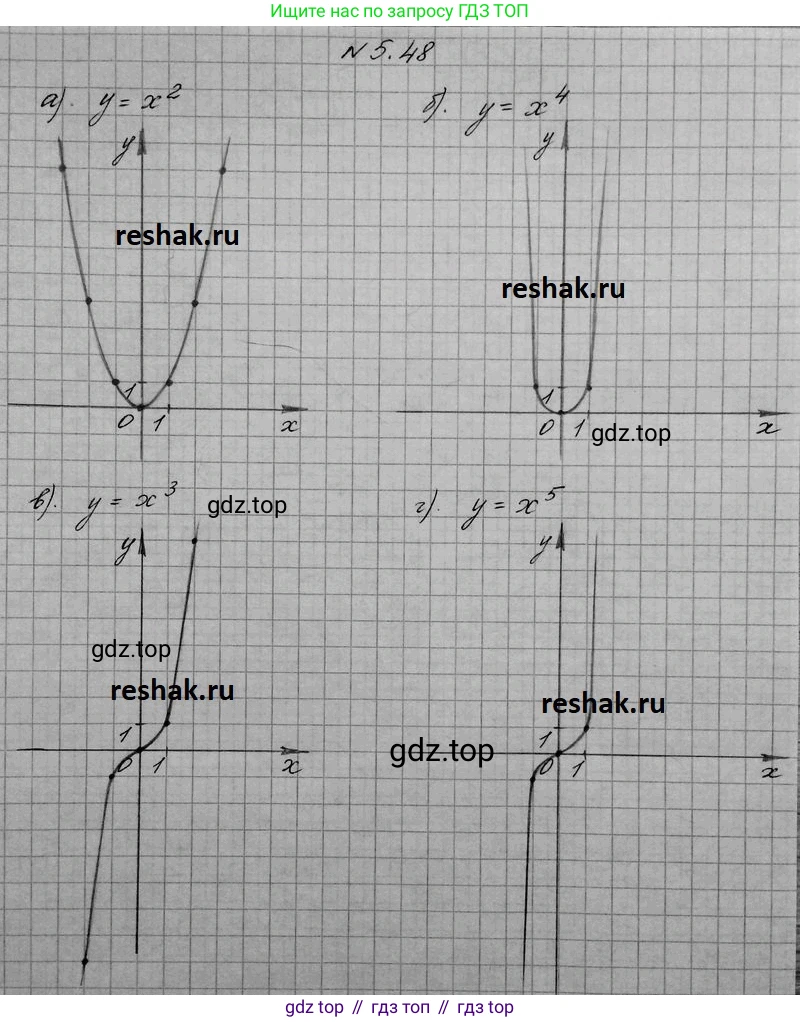 Ищите нас по запросу ГДЗ ТОП
N 5.48
а). y = x²
б). y = x⁴
y
y
reshak.ru
reshak.ru
1
1
0 1 x
0 1 x
gdz.top
в). y = x³
gdz.top
г). y = x⁵
y
y
gdz.top
reshak.ru
reshak.ru
1
1
gdz.top
0 1 x
0 1 x
gdz top // гдз топ // gdz top